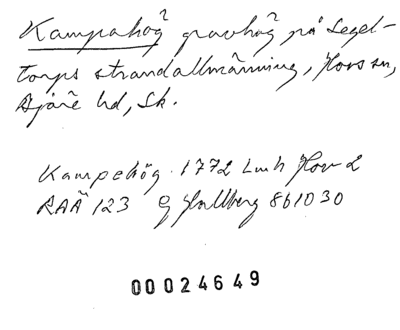 Kampahög gravhög på Segel-
torps strandallmänning, Hovs sn,
Bjäre hd, Sk.
Kampehög 1772 Lmh Hov 2
RAÄ 123 G Hallberg 861030
00024649